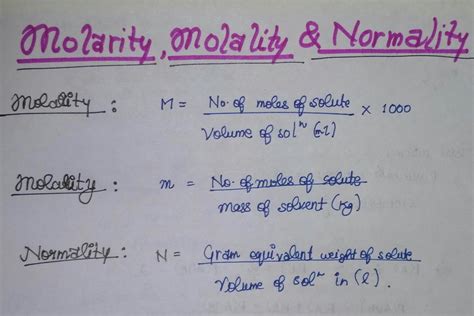 Molarity, Molality & Normality
Molarity : M = No. of moles of solute / Volume of solⁿ (ml) × 1000
Molality : m = No. of moles of solute / mass of solvent (Kg)
Normality : N = Gram equivalent weight of solute / Volume of solⁿ in (l).